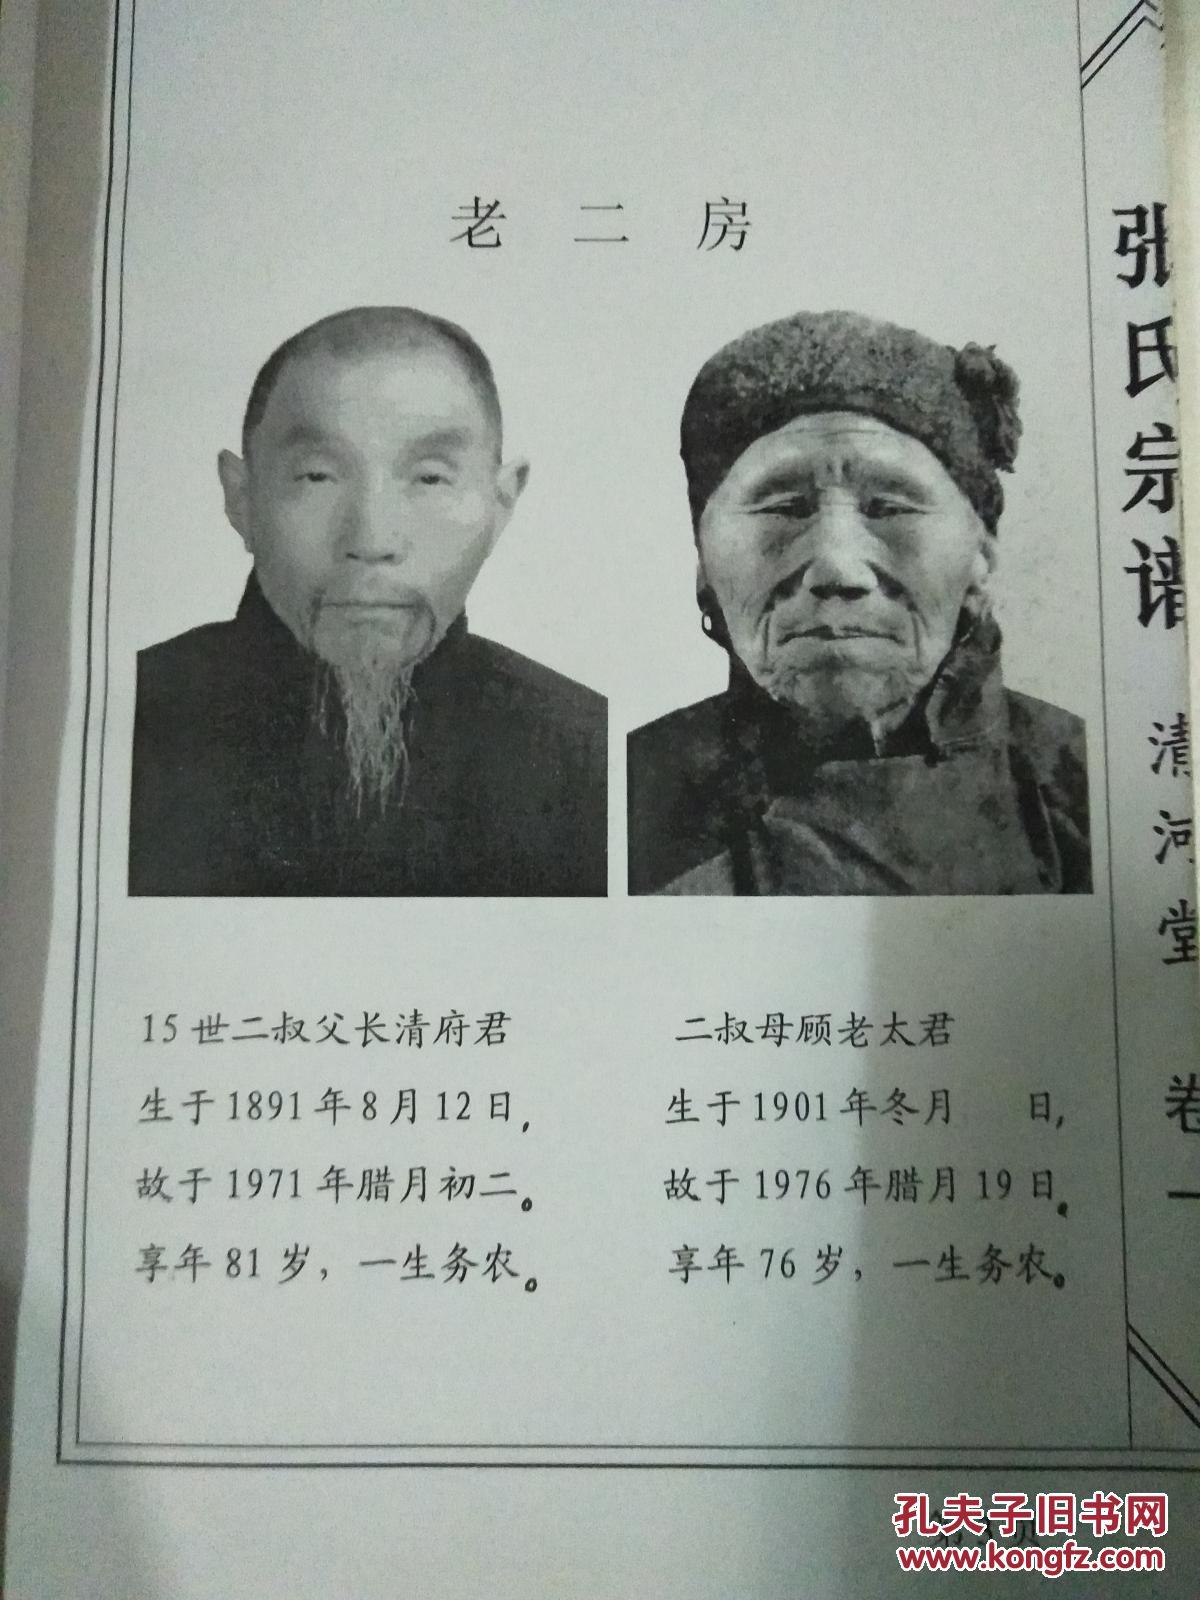 老二房
15世二叔父长清府君
生于1891年8月12日,
故于1971年腊月初二。
享年81岁，一生务农。
二叔母顾老太君
生于1901年冬月 日,
故于1976年腊月19日。
享年76岁，一生务农。
张氏宗谱
清河堂
卷一
孔夫子旧书网
www.kongfz.com